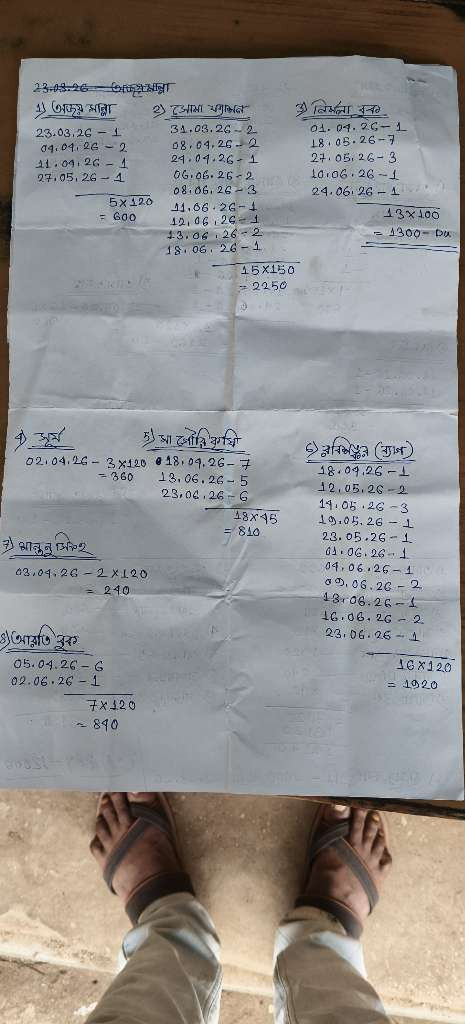 23.03.26 - অজয় মান্না
1) অজয় মান্না
23.03.26 - 1
04.04.26 - 2
11.04.26 - 1
27.05.26 - 1
5x120
= 600
2) সোমা
31.03.26 - 2
08.04.26 - 2
24.04.26 - 1
06.06.26 - 2
08.06.26 - 3
11.06.26 - 1
12.06.26 - 1
13.06.26 - 2
18.06.26 - 1
15x150
= 2250
3) নির্মলা বুক
01.04.26 - 1
18.05.26 - 7
27.05.26 - 3
10.06.26 - 1
24.06.26 - 1
13x100
= 1300 - Du
4) সূর্য
02.04.26 - 3x120
= 360
5) মা গৌরি কৃষি
18.04.26 - 7
13.06.26 - 5
23.06.26 - 6
18x45
= 810
6) রবিশঙ্কর (ব্যাগ)
18.04.26 - 1
12.05.26 - 2
14.05.26 - 3
19.05.26 - 1
23.05.26 - 1
01.06.26 - 1
04.06.26 - 1
09.06.26 - 2
13.06.26 - 1
16.06.26 - 2
23.06.26 - 1
16x120
= 1920
7) সিংহ
03.04.26 - 2x120
= 240
8) আরতি বুক
05.04.26 - 6
02.06.26 - 1
7x120
= 840